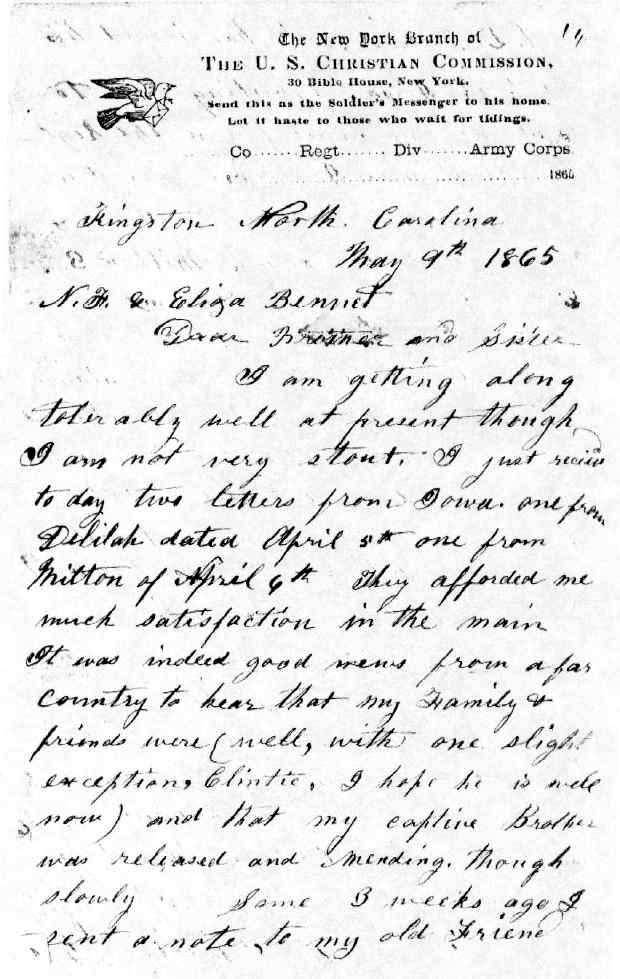 14
The New York Branch of
THE U. S. CHRISTIAN COMMISSION,
30 Bible House, New York.
Send this as the Soldier's Messenger to his home.
Let it haste to those who wait for tidings.
Co....... Regt....... Div....... Army Corps
186
Kingston North. Carolina
May 9th 1865
N. F. & Eliza Bennet
Dear Brother and Sister
I am getting along
tolerably well at present though
I am not very stout. I just recieved
to day two letters from Iowa. one from
Delilah dated April 5th one from
Milton of April 6th They afforded me
much satisfaction in the main
It was indeed good news from a far
country to hear that my Family &
friends were (well, with one slight
exception, Clintie, I hope he is well
now) and that my captive Brother
was released and mending. though
slowly Some 3 weeks ago I
sent a note to my old Friend